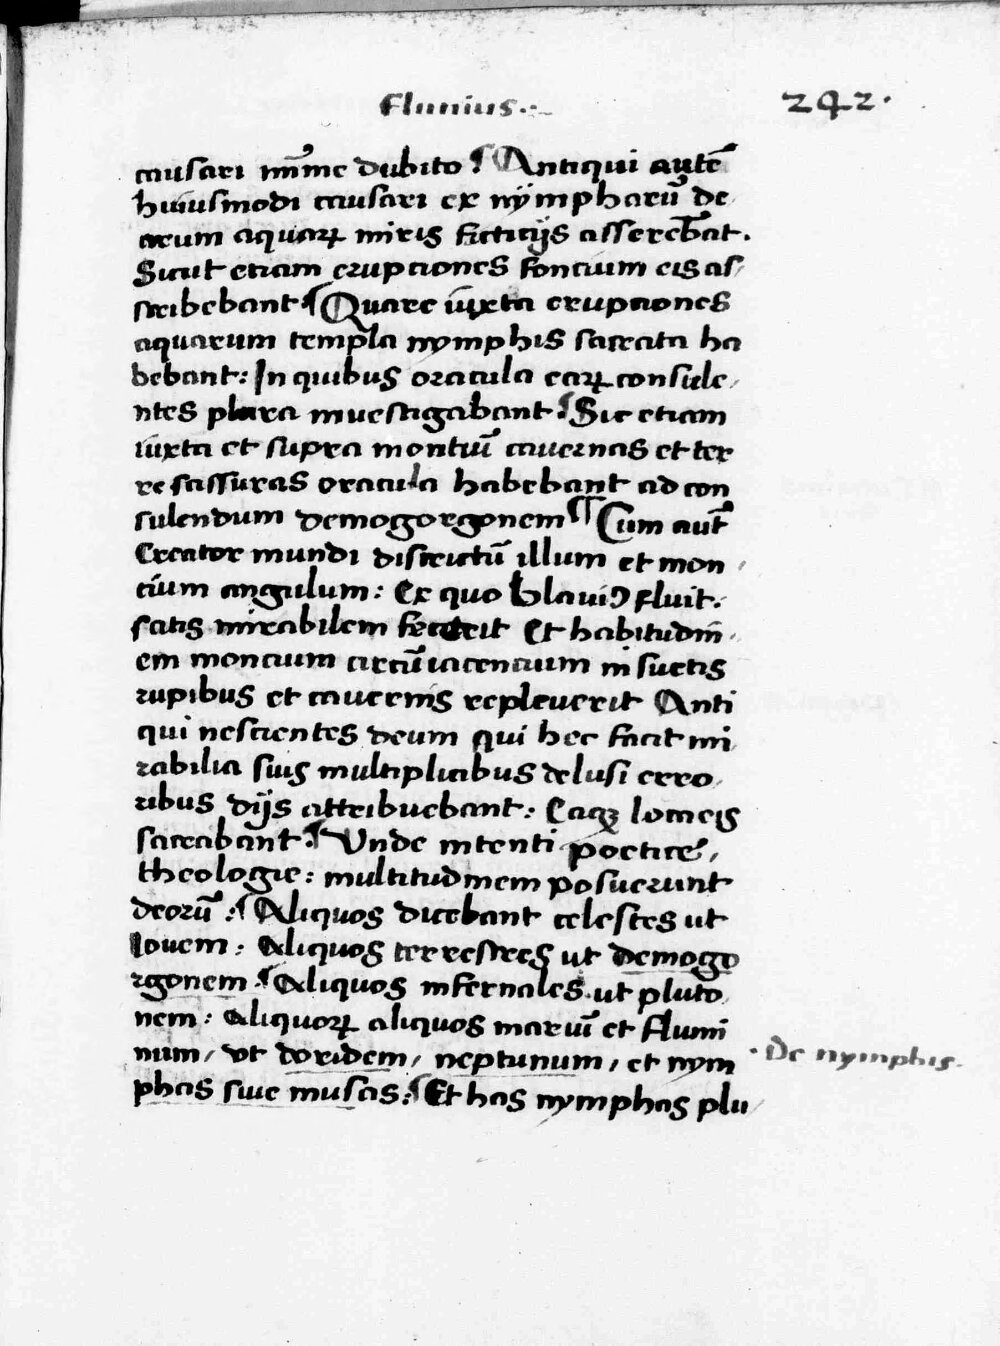 Fluuius.
242.
causari mĩme dubito ¶ Antiqui autẽ
huiusmodi causari ex nÿmpharũ de
arum aquaꝝ miris facticijs asserebãt.
Sicut etiam erupciones foncium eis as/
scribebant ¶ Quare iuxta erupciones
aquarum templa nymphis sacrata ha
bebant: In quibus oracula eaꝝ consule/
ntes plura inuestigabant ¶ Sic etiam
iuxta et supra montiũ cauernas et ter
re fassuras oracula habebant ad con
sulendum demogorgonem ¶ Cum aut̃
Creator mundi districtũ illum et mon/
cium angulum: Ex quo blauiꝰ fluit.
satis mirabilem fecerit Et habitudin/
em moncium circũiacencium in suetis
rupibus et cauernis repleuerit Anti
qui nescientes deum qui hec facit mi/
rabilia suis multiplicibus delusi erro/
ribus dijs attribuebant: Eaqꝫ loca eis
sacrabant ¶ Vnde intenti poetice/
theologie: multitudinem posuerunt
deorũ: ¶ Aliquos dicebant celestes ut
Iouem: Aliquos terrestres ut demogo
rgonem ¶ Aliquos infernales ut pluto/
nem: Aliquoꝝ aliquos mariũ et flumi
num/ vt doridem/ neptunum/ et nym
phas siue musas: ¶ Et has nymphas plu/
De nymphis.